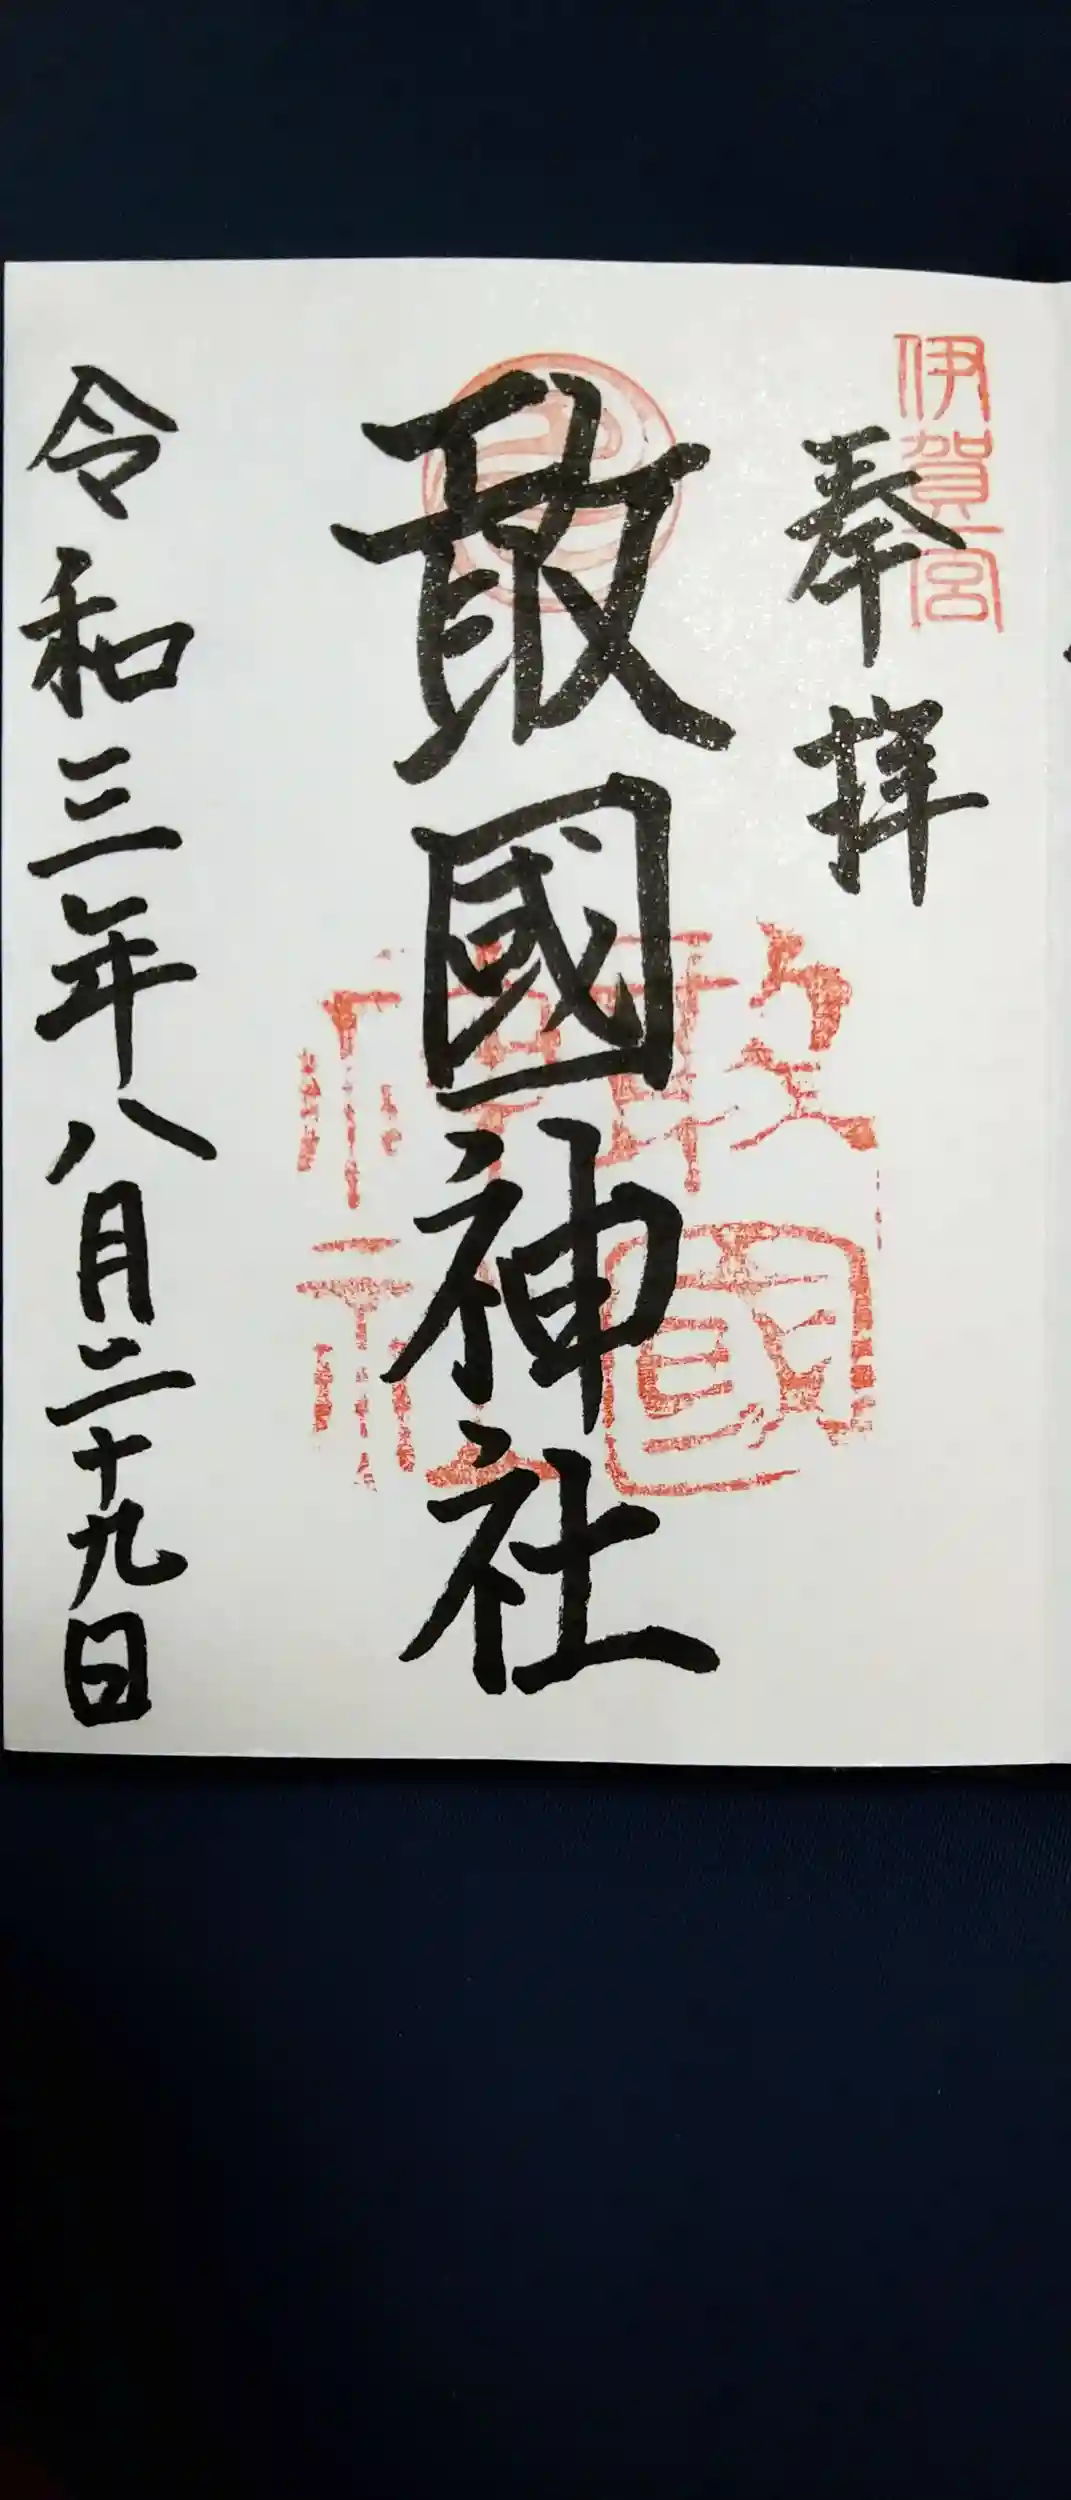 伊賀一宮
奉拝
敢國神社
敢國神社
令和三年八月二十九日